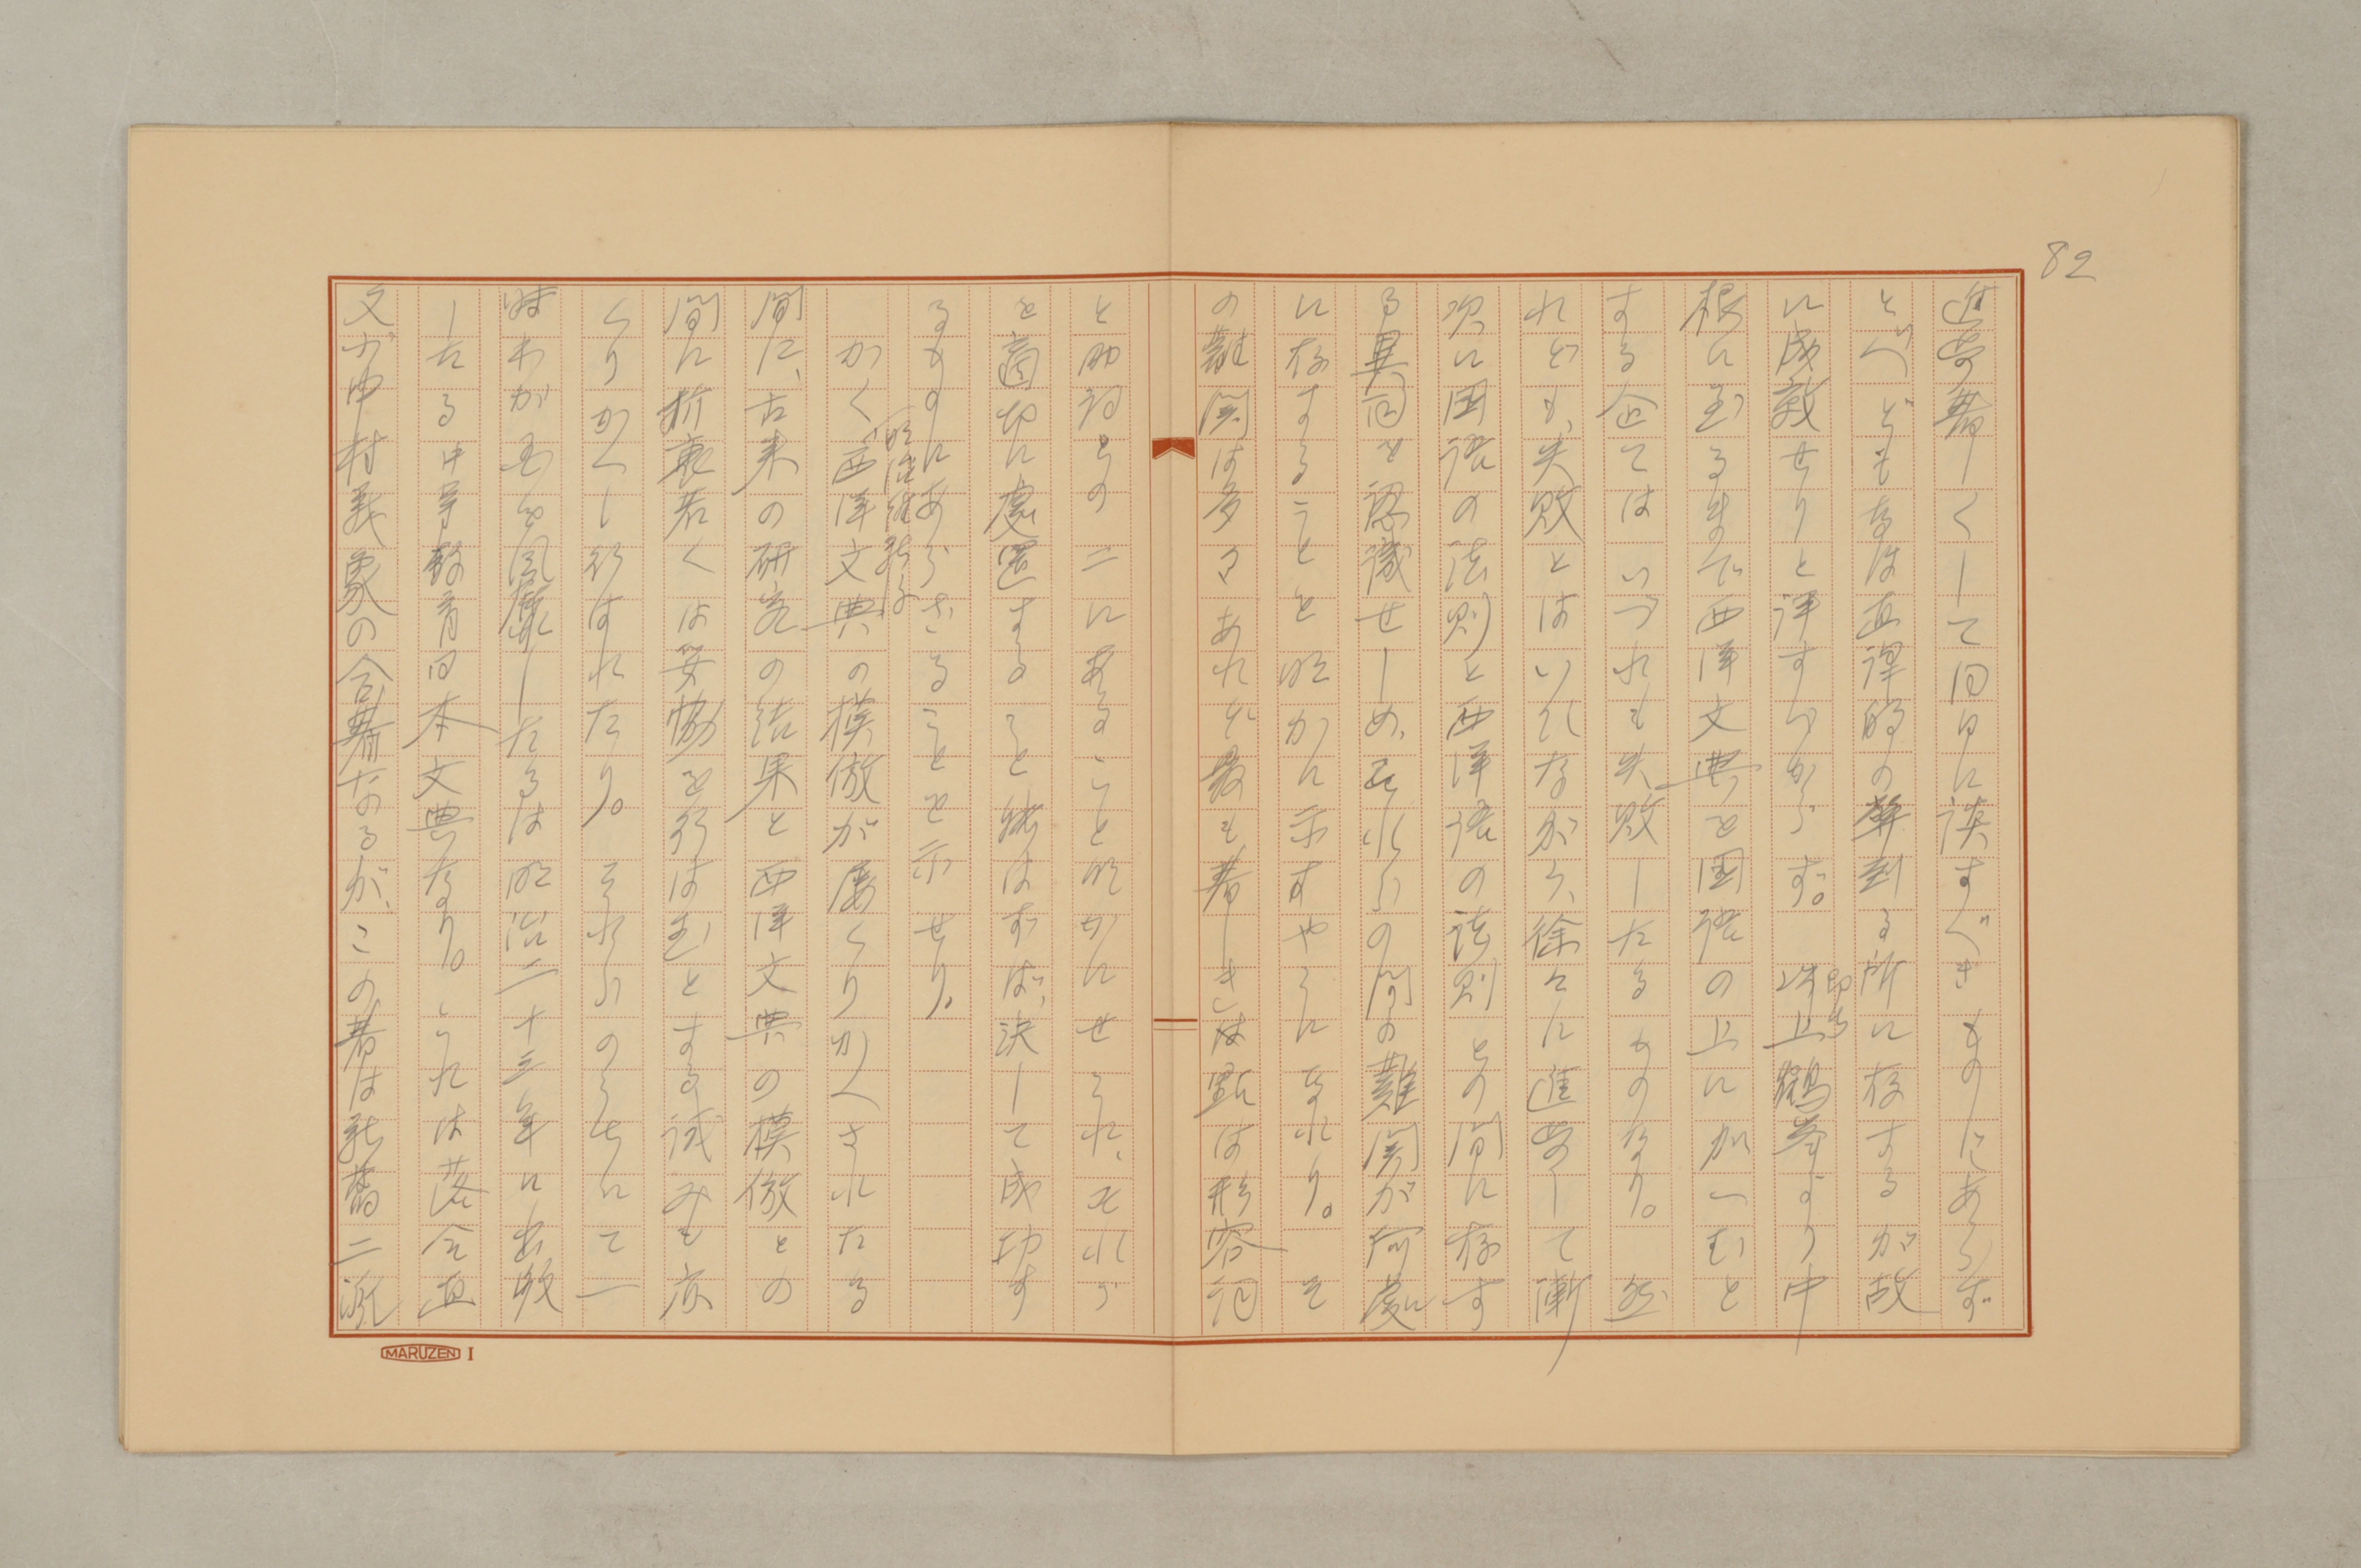 82
進歩著しくして同日に談すべきものにあらず
といへどもなほ直譯的の舉到る所に存するが故
に成效せりと評すべからず。即ち上鶴峯より中
根に到るまで西洋文典を国語の上に加へむと
する企てはいづれも失敗したるものなり。然
れども、失敗とはいひながら、徐々に進歩して漸
次に国語の法則と西洋語の法則との間に存す
る異同を認識せしめ、それらの間の難関が何處
に存するかを明かに示すやうになれり。そ
の難関は多々あれど最も著しきは一は形容詞
と助詞との二にあること明かにせられ、それが
を適切に處置すること能はずば、決して成功す
るものにあらざることを示せり。
かく明治維新後西洋文典の模倣が屡くりかへされたる
間に、古来の研究の結果と西洋文典の模倣との
間に折衷若くは妥協を行はむとする試みも亦
くりかへし行はれたり。それらのうちにて一
時わが国を風靡したるは明治二十三年に出版
したる中等教育日本文典なり。これは落合直
文小中村義象の合著なるが、この著は新舊二派
MARUZEN I